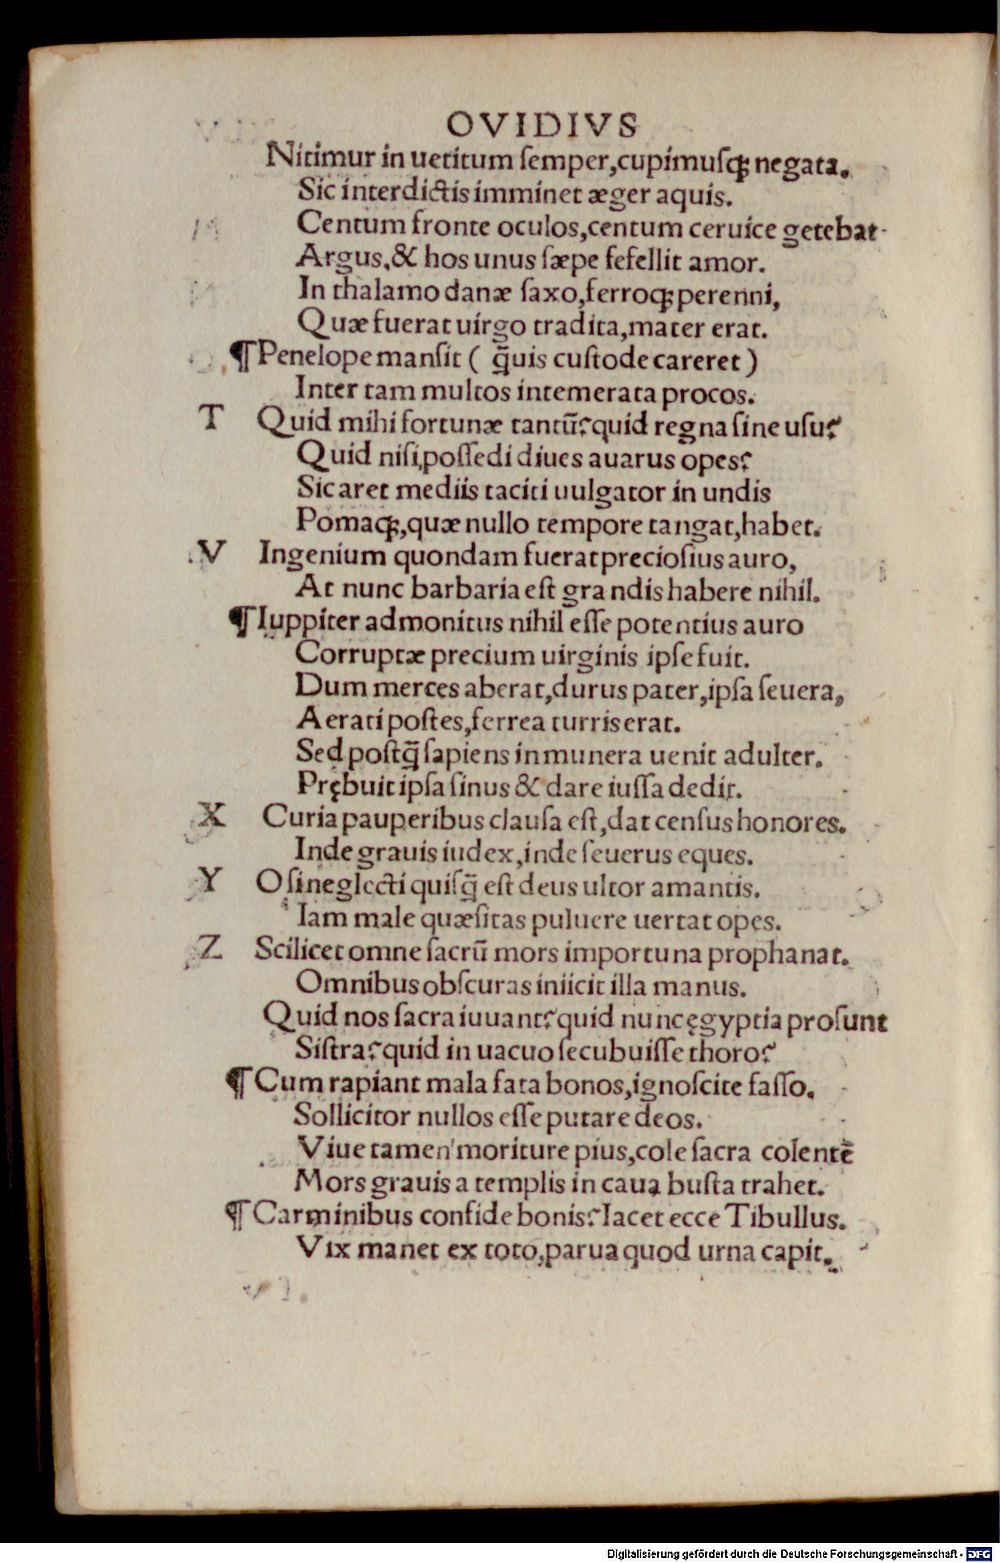 OVIDIVS
Nitimur in uetitum semper,cupimusqꝫ negata.
Sic interdictis imminet æger aquis.
Centum fronte oculos,centum ceruice getebat
Argus,& hos unus sæpe fefellit amor.
In thalamo danæ saxo,ferroqꝫ perenni,
Quæ fuerat uirgo tradita,mater erat.
¶Penelope mansit ( q̃uis custode careret )
Inter tam multos intemerata procos.
T Quid mihi fortunæ tantũ?quid regna sine usu?
Quid nisi,possedi diues auarus opes?
Sic aret mediis taciti uulgator in undis
Pomaqꝫ,quæ nullo tempore tangat,habet.
.V Ingenium quondam fuerat preciosius auro,
At nunc barbaria est gra ndis habere nihil.
¶Iuppiter admonitus nihil esse potentius auro
Corruptæ precium uirginis ipse fuit.
Dum merces aberat,durus pater,ipsa seuera,
Aerati postes,ferrea turris erat.
Sed postq̃ sapiens in munera uenit adulter.
Prębuit ipsa sinus & dare iussa dedit.
X Curia pauperibus clausa est,dat census honores.
Inde grauis iudex,inde seuerus eques.
Y O si neglecti quisq̃ est deus ultor amantis.
Iam male quæsitas puluere uertat opes.
Z Scilicet omne sacrũ mors importuna prophanat.
Omnibus obscuras iniicit illa manus.
Quid nos sacra iuuant?quid nunc ęgyptia prosunt
Sistra?quid in uacuo secubuisse thoro?
¶Cum rapiant mala fata bonos,ignoscite fasso.
Sollicitor nullos esse putare deos.
Viue tamen moriture pius,cole sacra colentẽ
Mors grauis a templis in caua busta trahet.
¶Carminibus confide bonis?Iacet ecce Tibullus.
Vix manet ex toto,parua quod urna capit.
Digitalisierung gefördert durch die Deutsche Forschungsgemeinschaft - DFG